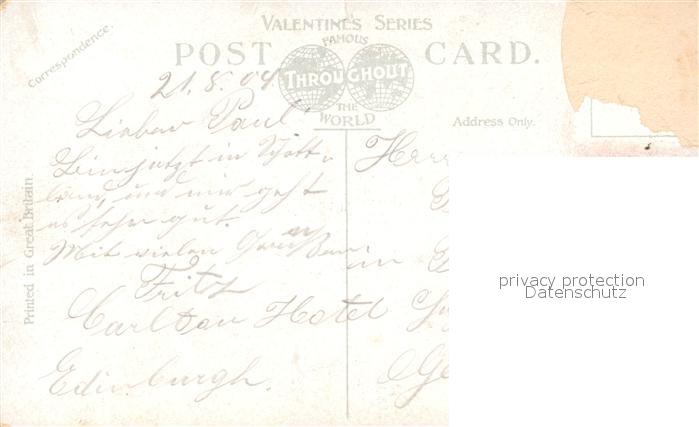 VALENTINE'S SERIES
FAMOUS
POST CARD.
THROUGHOUT
THE
WORLD
Correspondence.
Address Only.
Printed in Great Britain.
21. 8. 09.
Lieber Paul!
Bin jetzt in Schott-
land, und mir geht
es sehr gut.
Mit vielen Grüßen
Fritz
Carlton Hotel
Edinburgh.
Herr
in
privacy protection
Datenschutz